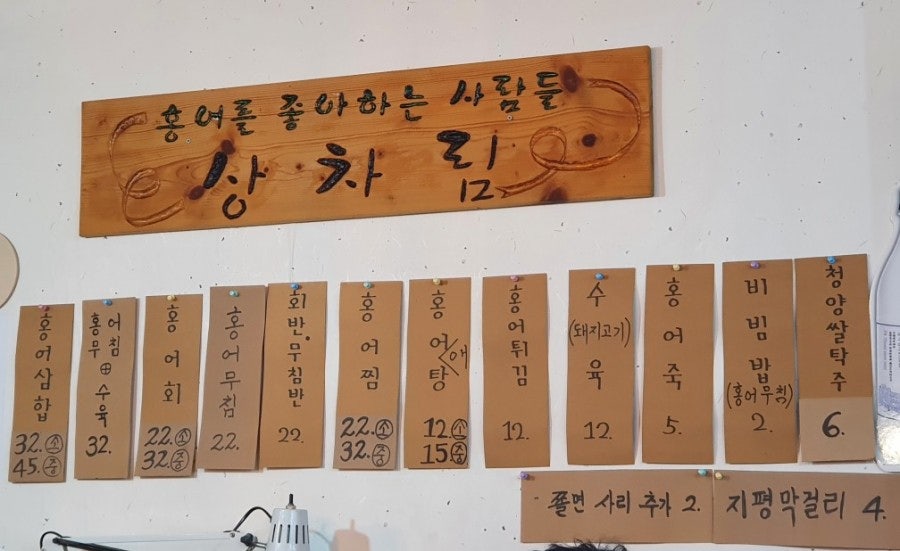 홍어를 좋아하는 사람들
상차림
홍어삼합
32. 소
45. 중
홍어
무침
⊕
수육
32.
홍어회
22. 소
32. 중
홍어무침
22.
회반.무침반
22.
홍어찜
22. 소
32. 중
홍어<애탕
12. 소
15. 중
홍어튀김
12.
수
(돼지고기)
육
12.
홍어죽
5.
비빔밥
(홍어무침)
2.
청양쌀탁주
6.
쫄면 사리 추가 2.
지평막걸리 4.